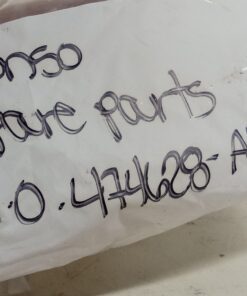 onso
pare parts
.0.474628-A